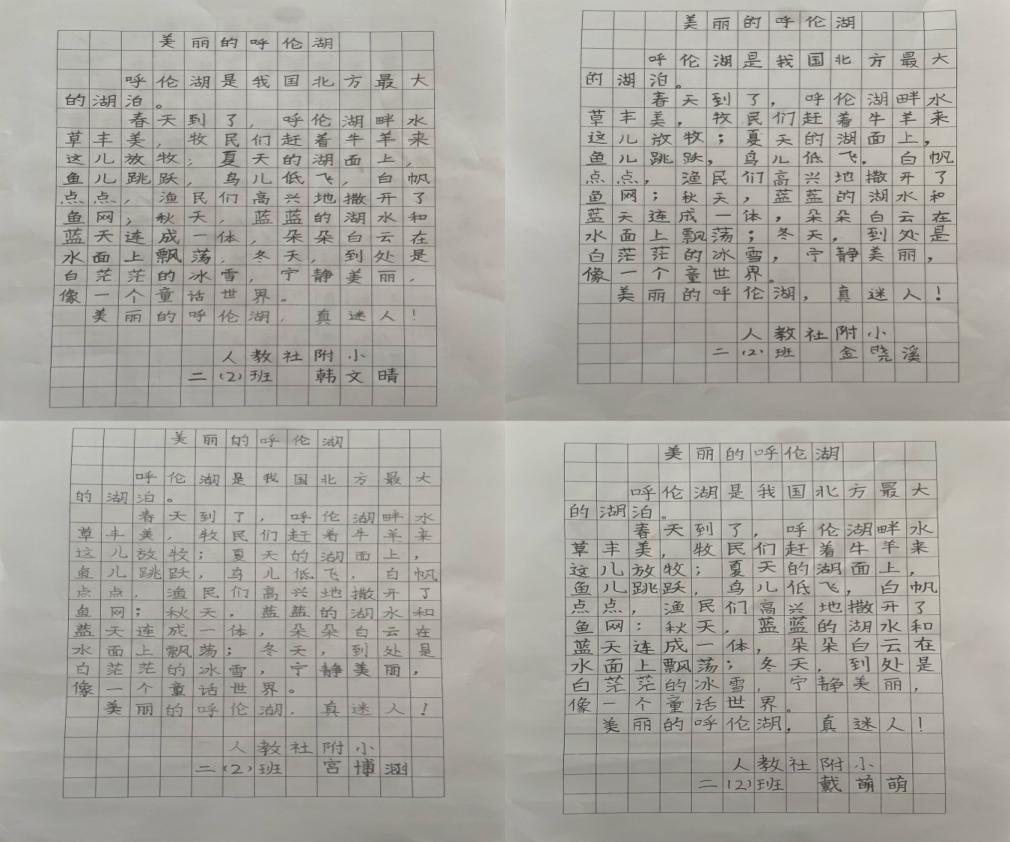 美丽的呼伦湖
呼伦湖是我国北方最大
的湖泊。
春天到了，呼伦湖畔水
草丰美，牧民们赶着牛羊来
这儿放牧；夏天的湖面上，
鱼儿跳跃，鸟儿低飞，白帆
点点，渔民们高兴地撒开了
鱼网；秋天，蓝蓝的湖水和
蓝天连成一体，朵朵白云在
水面上飘荡，冬天，到处是
白茫茫的冰雪，宁静美丽，
像一个童话世界。
美丽的呼伦湖，真迷人！
人教社附小
二（2）班 韩文晴
美丽的呼伦湖
呼伦湖是我国北方最大
的湖泊。
春天到了，呼伦湖畔水
草丰美，牧民们赶着牛羊来
这儿放牧；夏天的湖面上，
鱼儿跳跃，鸟儿低飞，白帆
点点，渔民们高兴地撒开了
鱼网；秋天，蓝蓝的湖水和
蓝天连成一体，朵朵白云在
水面上飘荡；冬天，到处是
白茫茫的冰雪，宁静美丽，
像一个童世界。
美丽的呼伦湖，真迷人！
人教社附小
二（2）班 金晓溪
美丽的呼伦湖
呼伦湖是我国北方最大
的湖泊。
春天到了，呼伦湖畔水
草丰美，牧民们赶着牛羊来
这儿放牧；夏天的湖面上，
鱼儿跳跃，鸟儿低飞，白帆
点点，渔民们高兴地撒开了
鱼网；秋天，蓝蓝的湖水和
蓝天连成一体，朵朵白云在
水面上飘荡；冬天，到处是
白茫茫的冰雪，宁静美丽，
像一个童话世界。
美丽的呼伦湖，真迷人！
人教社附小
二（2）班 宫博涵
美丽的呼伦湖
呼伦湖是我国北方最大
的湖泊。
春天到了，呼伦湖畔水
草丰美，牧民们赶着牛羊来
这儿放牧；夏天的湖面上，
鱼儿跳跃，鸟儿低飞，白帆
点点，渔民们高兴地撒开了
鱼网；秋天，蓝蓝的湖水和
蓝天连成一体，朵朵白云在
水面上飘荡；冬天，到处是
白茫茫的冰雪，宁静美丽，
像一个童话世界。
美丽的呼伦湖，真迷人！
人教社附小
二（2）班 戴萌萌